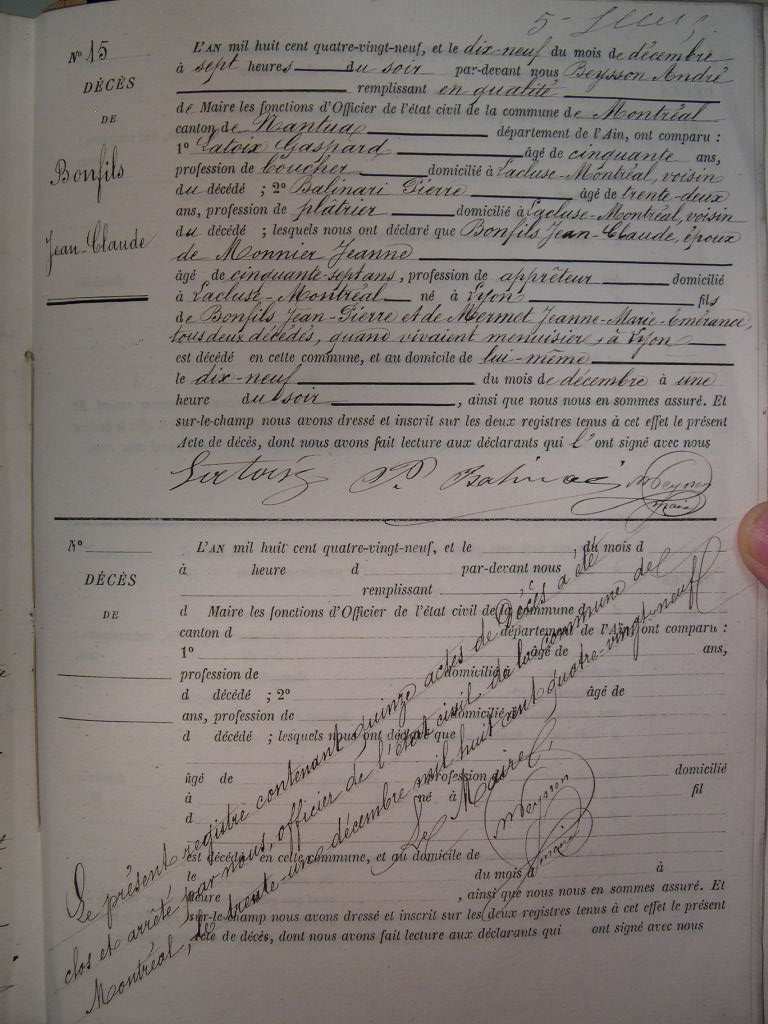 Nº 15
DÉCÈS
DE
Bonfils
Jean-Claude
L'AN mil huit cent quatre-vingt-neuf, et le dix-neuf du mois de décembre
à sept heures du soir par-devant nous Beysson André
remplissant en qualité
de Maire les fonctions d'Officier de l'état civil de la commune de Montréal
canton de Nantua département de l'Ain, ont comparu :
1º Latoix Gaspard âgé de cinquante ans,
profession de boucher domicilié à Lacluse-Montréal, voisin
du décédé ; 2º Balinari Pierre âgé de trente-deux
ans, profession de plâtrier domicilié à Lacluse-Montréal, voisin
du décédé ; lesquels nous ont déclaré que Bonfils Jean-Claude, époux
de Monnier Jeanne
âgé de cinquante-sept ans, profession de apprêteur domicilié
à Lacluse-Montréal né à Lyon fils
de Bonfils Jean-Pierre et de Mermet Jeanne-Marie-Emérance,
tous deux décédés, quand vivaient menuisier, à Lyon
est décédé en cette commune, et au domicile de lui-même
le dix-neuf du mois de décembre à une
heure du soir, ainsi que nous nous en sommes assuré. Et
sur-le-champ nous avons dressé et inscrit sur les deux registres tenus à cet effet le présent
Acte de décès, dont nous avons fait lecture aux déclarants qui l'ont signé avec nous
Nº
DÉCÈS
DE
L'AN mil huit cent quatre-vingt-neuf, et le , du mois d
à heure d par-devant nous
remplissant
d Maire les fonctions d'Officier de l'état civil de la commune d
canton d département de l'Ain, ont comparu :
1º âgé de ans,
profession de domicilié
d décédé ; 2º âgé de
ans, profession de domicilié
d décédé ; lesquels nous ont déclaré que
âgé de profession domicilié
à né à fil
d
est décédé en cette commune, et au domicile de
le du mois à
heure , ainsi que nous nous en sommes assuré. Et
sur-le-champ nous avons dressé et inscrit sur les deux registres tenus à cet effet le présent
Acte de décès, dont nous avons fait lecture aux déclarants qui ont signé avec nous
Le présent registre contenant quinze actes de Décès a été
clos et arrêté par nous, officier de l'état civil de la commune de
Montréal, le trente-un décembre mil huit cent quatre-vingt-neuf
Le Maire,